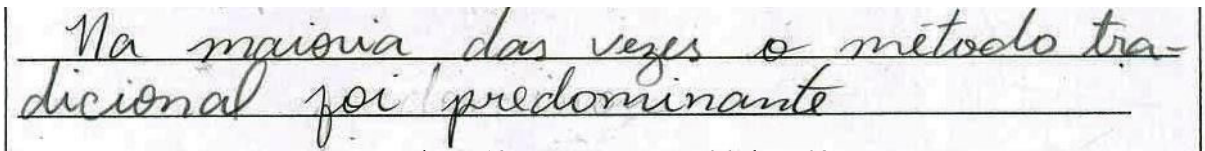 Na maioria das vezes o método tra-
dicional foi predominante